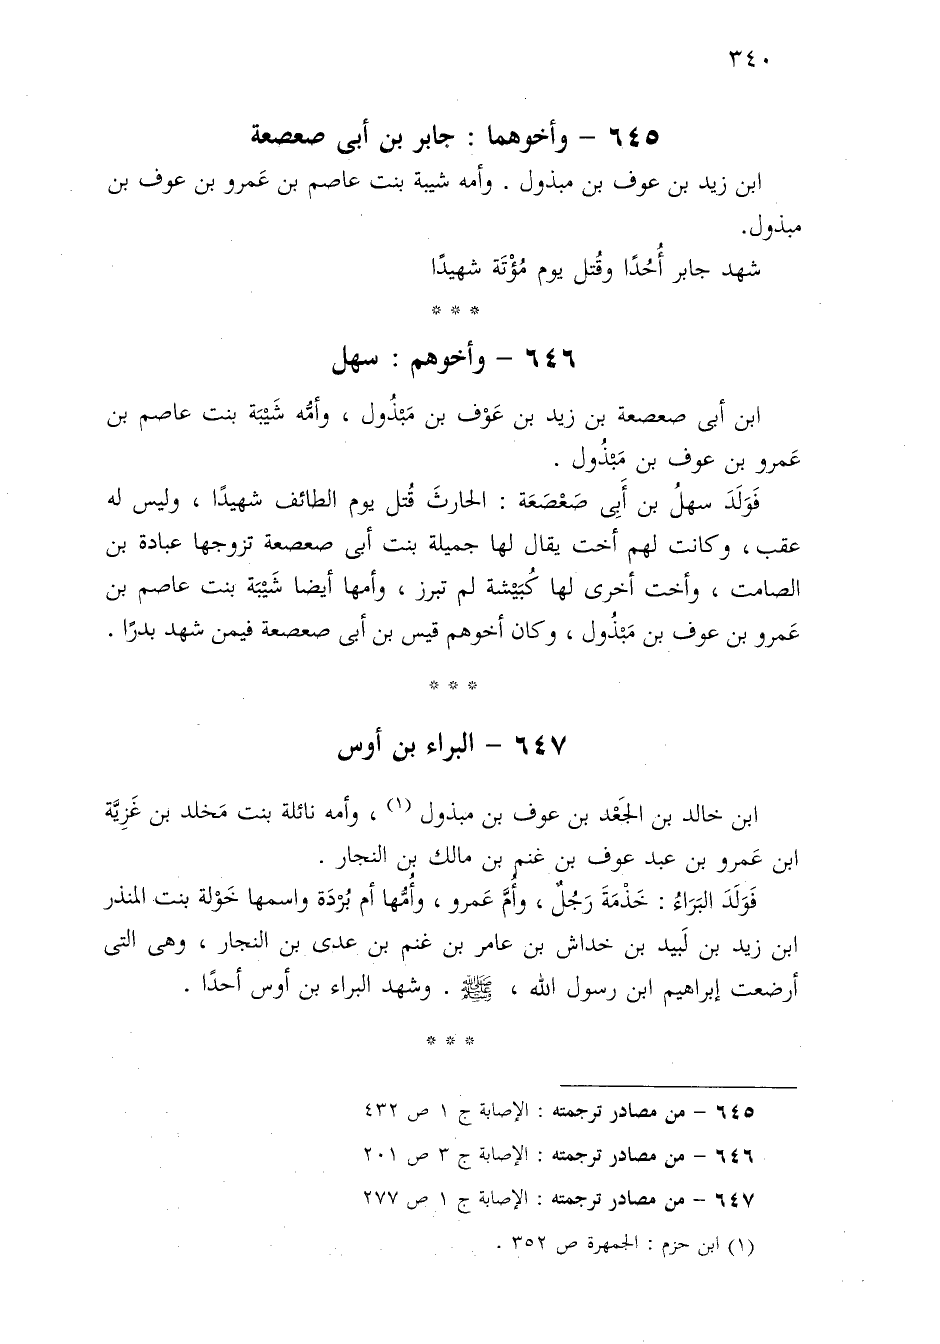 ٣٤٠
٦٤٥ – وأخوهما : جابر بن أبى صعصعة
ابن زيد بن عوف بن مبذول . وأمه شيبة بنت عاصم بن عَمرو بن عوف بن
مبذول.
شهد جابر أُحُدًا وقُتل يوم مُؤْتَة شهيدًا
* * *
٦٤٦ – وأخوهم : سهل
ابن أبى صعصعة بن زيد بن عَوْف بن مَبْذُول ، وأمُّه شَيْبَة بنت عاصم بن
عَمرو بن عوف بن مَبْذُول .
فَوَلَدَ سهلُ بن أَبِى صَعْصَعَة : الحارثَ قُتل يوم الطائف شهيدًا ، وليس له
عقب ، وكانت لهم أخت يقال لها جميلة بنت أبى صعصعة تزوجها عبادة بن
الصامت ، وأخت أخرى لها كُبَيْشة لم تبرز ، وأمها أيضا شَيْبَة بنت عاصم بن
عَمرو بن عوف بن مَبْذُول ، وكان أخوهم قيس بن أبى صعصعة فيمن شهد بدرًا .
* * *
٦٤٧ – البراء بن أوس
ابن خالد بن الجَعْد بن عوف بن مبذول (١) ، وأمه نائلة بنت مَخلد بن غَزِيَّة
ابن عَمرو بن عبد عوف بن غنم بن مالك بن النجار .
فَوَلَدَ البَرَاءُ : خَذْمَةَ رَجُلٌ ، وأُمَّ عَمرو ، وأُمُّها أم بُرْدَة واسمها خَوْلة بنت المنذر
ابن زيد بن لَبيد بن خداش بن عامر بن غنم بن عدى بن النجار ، وهى التى
أرضعت إبراهيم ابن رسول الله ، ﷺ . وشهد البراء بن أوس أحدًا .
* * *
٦٤٥ – من مصادر ترجمته : الإصابة ج ١ ص ٤٣٢
٦٤٦ – من مصادر ترجمته : الإصابة ج ٣ ص ٢٠١
٦٤٧ – من مصادر ترجمته : الإصابة ج ١ ص ٢٧٧
(١) ابن حزم : الجمهرة ص ٣٥٢ .